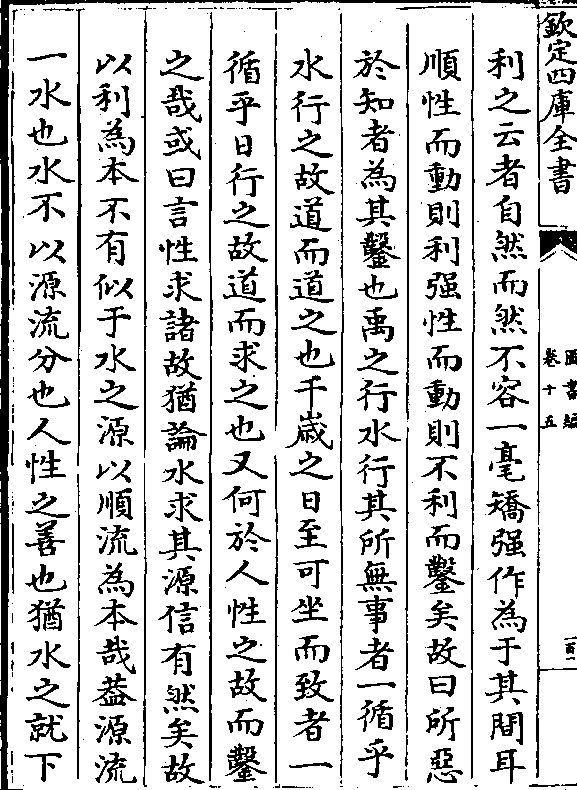 欽定四庫全書
圖書編
卷十五
利之云者自然而然不容一毫矯强作為于其間耳
順性而動則利强性而動則不利而鑿矣故曰所惡
於知者為其鑿也禹之行水行其所無事者一循乎
水行之故道而道之也千嵗之日至可坐而致者一
循乎日行之故道而求之也又何於人性之故而鑿
之哉或曰言性求諸故猶論水求其源信有然矣故
以利為本不有似于水之源以順流為本哉葢源流
一水也水不以源流分也人性之善也猶水之就下